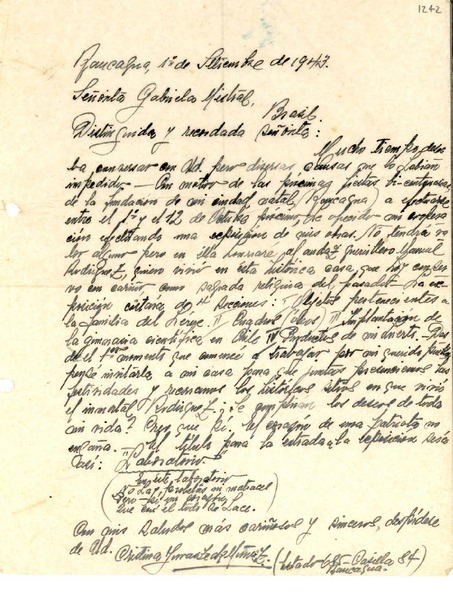 1242
Rancagua, 1º de Setiembre de 1943.
Señorita Gabriela Mistral,
Brasil
Distinguida y recordada señorita:
Mucho tiempo desea
ba conversar con Ud. pero diversas causas que lo habían
impedido.— Con motivo de las próximas fiestas bi-centenarias
de la fundación de mi ciudad natal (Rancagua) a efectuarse
entre el 1º y el 12 de Octubre próximo, he ofrecido mi coopera
ción efectuando una exposición de mis obras. No tendrá va
lor alguno pero en ella honraré al audaz guerrillero Manuel
Rodríguez, quien vivió en esta histórica casa, que hoy conser
vo con cariño, como sagrada reliquia del pasado. La ex
posición constará de 4 secciones: I Objetos pertenecientes a
la familia del Héroe. II Cuadros (óleos) III Implantación de
la Gimnasia científica en Chile IV Productos de mi huerto. Des
de el 1er momento que comencé a trabajar por mi querido pueblo,
pensé invitarla a mi casa para que juntas presenciemos las
festividades y recorramos los históricos sitios en que vivió
el inmortal Rodríguez. ¿Se cumplirán los deseos de toda
mi vida? Creo que sí. El corazón de una patriota no
engaña. El título para la entrada a la exposición será
así: "Laboratorio"
En este laboratorio
No hay probetas ni matraces
Pero sí, un corazón
que con él todo lo hace.
Con mis saludos más cariñosos y sinceros, despídese
de Ud.
Cristina (Estado 685 - Casilla 84
Rancagua.